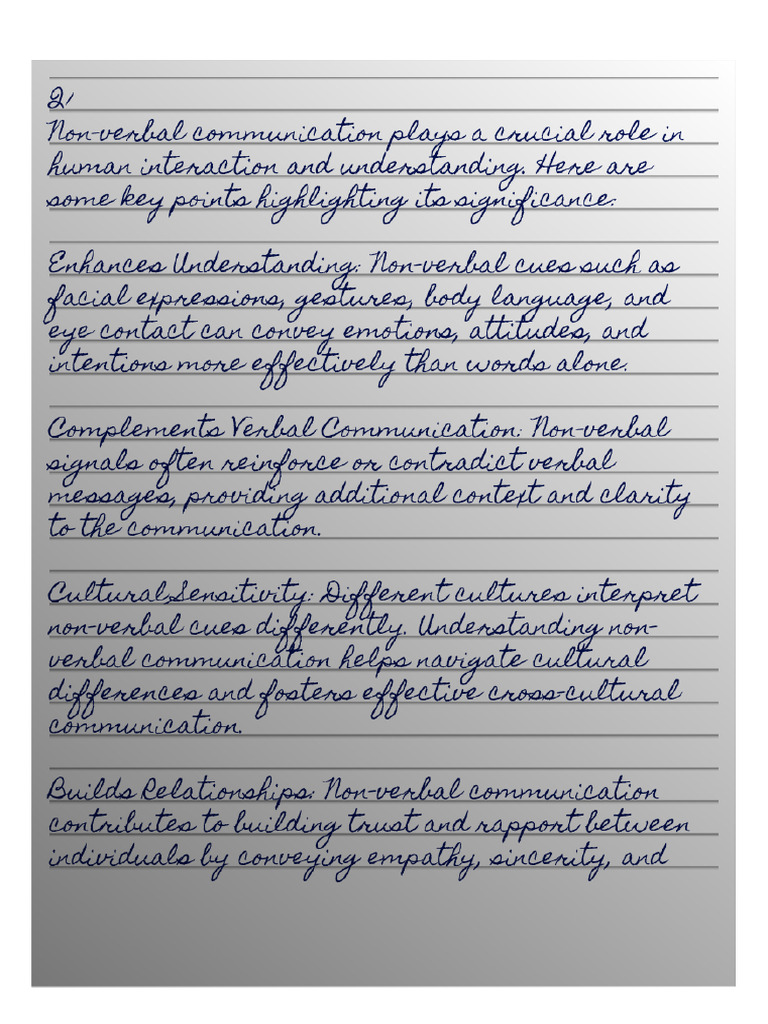 2/
Non-verbal communication plays a crucial role in
human interaction and understanding. Here are
some key points highlighting its significance:
Enhances Understanding: Non-verbal cues such as
facial expressions, gestures, body language, and
eye contact can convey emotions, attitudes, and
intentions more effectively than words alone.
Complements Verbal Communication: Non-verbal
signals often reinforce or contradict verbal
messages, providing additional context and clarity
to the communication.
Cultural Sensitivity: Different cultures interpret
non-verbal cues differently. Understanding non-
verbal communication helps navigate cultural
differences and fosters effective cross-cultural
communication.
Builds Relationships: Non-verbal communication
contributes to building trust and rapport between
individuals by conveying empathy, sincerity, and